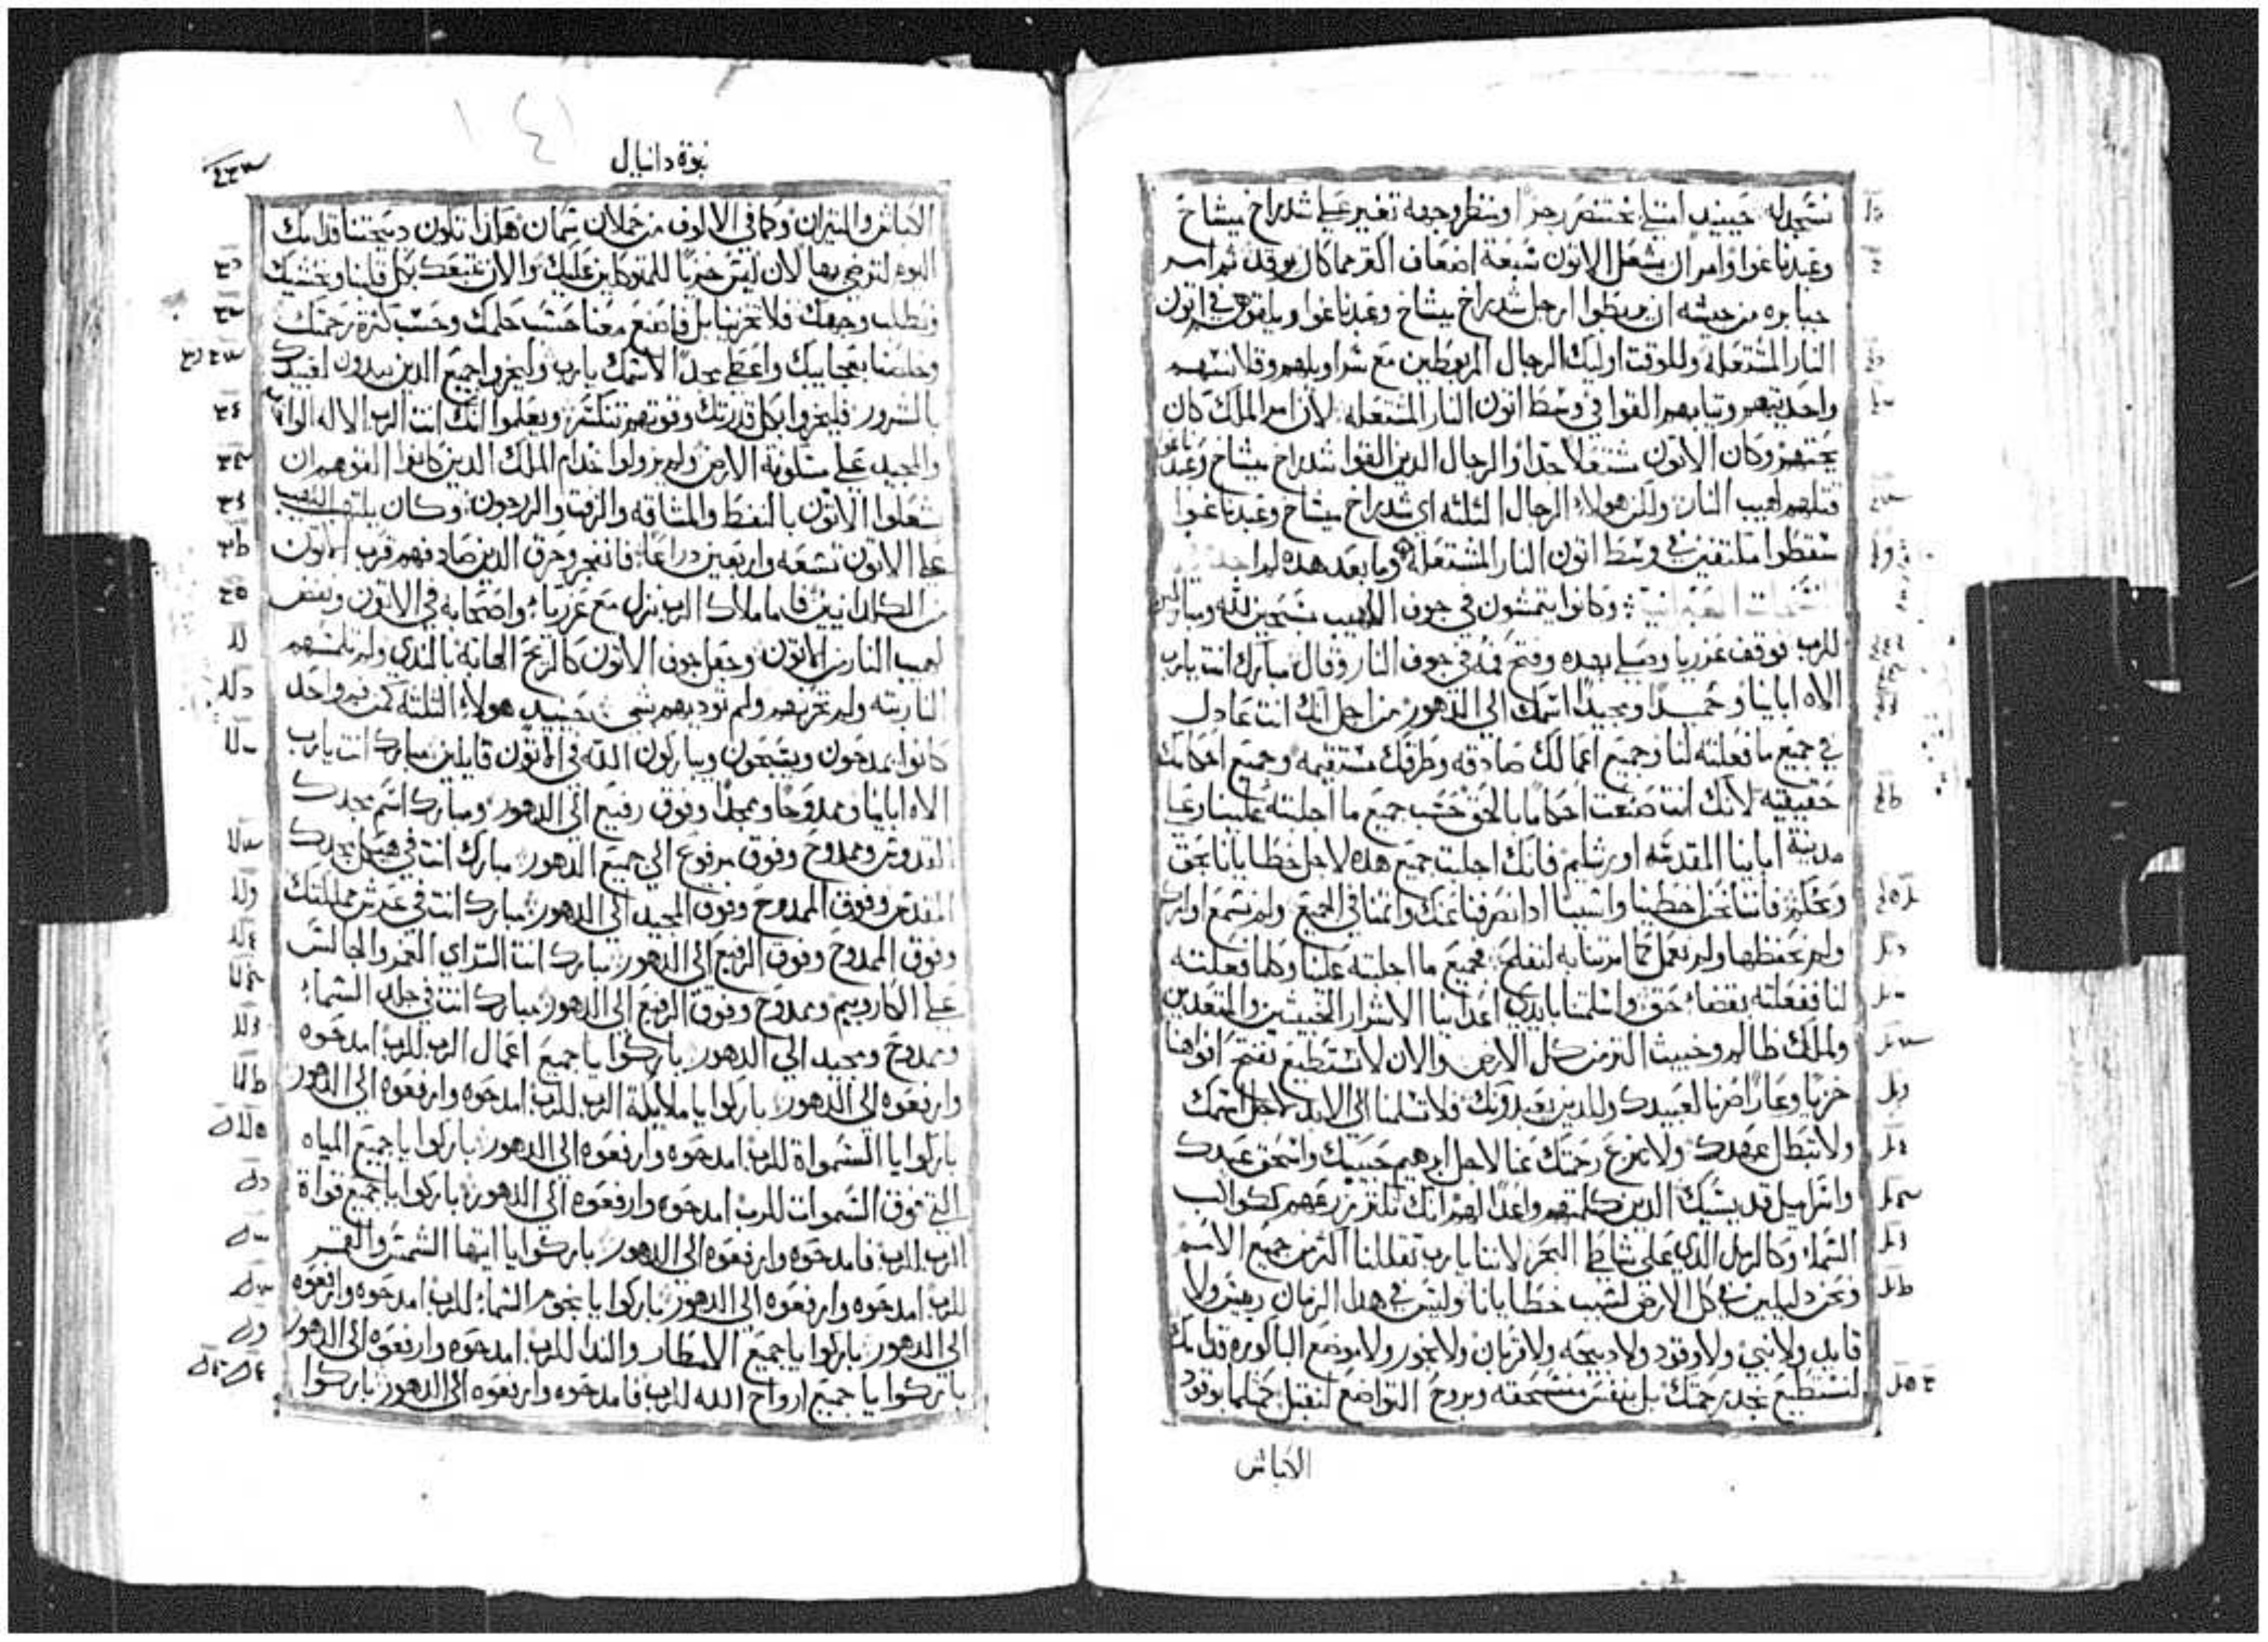 نسجد له حينيد امتلي بختنصر رجزا ومنظر وجهه تغير علي شدراخ ميشاخ
وعبدناغوا وامر ان يشعل الاتون سبعة اضعاف اكثر مما كان يوقد ثم امر
جبابره من جيشه ان يربطوا ارجل شدراخ ميشاخ وعبدناغوا ويلقوهم في اتون
النار المشتعله وللوقت اوليك الرجال المربوطين مع سراويلهم وقلانسهم
واحذيتهم وتيابهم القوا في وسط اتون النار المشتعله لان امر الملك كان
يحتهم وكان الاتون مشتعلا جدا والرجال الدين القوا شدراخ ميشاخ وعبدناغوا
قتلهم لهيب النار ولكن هولاء الرجال التلته اي شدراخ ميشاخ وعبدناغوا
سقطوا ملتفين في وسط اتون النار المشتعله وما بعد هده لم اجده في
النسخات العبرانيه وكانوا يتمشون في جوف اللهيب مسبحين لله ومباركين
للرب فوقف عزريا وصلي بهده وفتح فمه في جوف النار وقال مبارك انت يارب
الاه اباينا وحميدا ومجيدا اسمك الي الدهور من اجل انك انت عادل
في جميع ما فعلته لنا وجميع اعمالك صادقه وطرقك مستقيمه وجميع احكامك
حقيقيه لانك انت صنعت احكاما بالحق حسب جميع ما اجلبته علينا وعلي
مدينة اباينا المقدسه اورشليم فانك اجلبت جميع هده لاجل خطايانا بحق
وبحكم فاننا نحن اخطينا واسينا ادا نصرفنا عنك واتمنا في الجميع ولم نسمع اوامرك
ولم نحفظها ولم نعمل كما امرتنا به لنفلح فجميع ما اجلبته علينا وكلما فعلته
لنا ففعلته بقضاء حق واسلمتنا بايدي اعداينا الاشرار الخبيثين والمتعدين
ولملك ظالم وخبيث اكثر من كل الارض والان لا نستطيع نفتح افواهنا
خزيا وعارا صرنا لعبيدك وللدين يعبدونك فلا تسلمنا الي الابد لاجل اسمك
ولا تبطل عهدك ولا تنزع رحمتك عنا لاجل ابرهيم حبيبك واسحق عبدك
واسراييل قديسك الدين كلمتهم واعدا لهم انك تكتر زرعهم ككواكب
السماء وكالرمل الدي علي شاطي البحر لاننا يارب تقللنا اكتر من جميع الامم
ونحن دليلين في كل الارض لسبب خطايانا وليس في هدا الزمان رييس ولا
قايد ولا نبي ولا وقود ولا دبيحه ولا قربان ولا بخور ولا موضع الباكوره قدامك
لنستطيع نجد رحمتك بل بنفس منسحقه وبروح التواضع لنقبل كمتلما بوقود
الكباش
نبوة دانيال
الكباش والتيران وكما في الالوف من حملان سمان هكذا تكون دبيحتنا قدامك
اليوم لترضي بها لان ليس خزيا للمتوكلين عليك والان نتبعك بكل قلبنا ونخشيك
ونطلب وجهك فلا تخزينا بل فاصنع معنا حسب حلمك وحسب كثرة رحمتك
وخلصنا بعجايبك واعط مجدا لاسمك يارب وليخز واجميع الدين يبدون لعبيدك
بالسرور فليخزوا بكل قدرتك وقوتهم تنكسر ويعلموا انك انت الرب الاله الواحد
والمجيد علي مسكونة الارض ولم يزولوا خدام الملك الدين كانوا القوهم ان
يشعلوا الاتون بالنفط والمشاقه والزفت والزرجون وكان يلتهب اللهيب
علي الاتون تسعه واربعين دراعا فانفجر وحرق الدين صادفهم قرب الاتون
من الكلدانيين فاما ملاك الرب نزل مع عزريا واصحابه في الاتون ونفض
لهيب النار من الاتون وجعل جوف الاتون كالريح الهابه بالندي ولم تلمسهم
النار بته ولم تحزنهم ولم توديهم شي حينيد هولاء التلته كمن فم واحد
كانوا يمدحون ويسبحون ويباركون الله في الاتون قايلين مبارك انت يارب
الاه اباينا وممدوحا وممجدا وفوق رفيع الي الدهور ومبارك اسم مجدك
القدوس وممدوح وفوق مرفوع الي جميع الدهور مبارك انت في هيكل مجدك
المقدس وفوق الممدوح وفوق المجيد الي الدهور مبارك انت في عرش مملكتك
وفوق الممدوح وفوق الرفيع الي الدهور مبارك انت التراي العمق والجالس
علي الكاروبيم وممدوح وفوق الرفيع الي الدهور مبارك انت في جلد السماء
وممدوح ومجيد الي الدهور باركوا يا جميع اعمال الرب للرب امدحوه
وارفعوه الي الدهور باركوا يا ملايكة الرب للرب امدحوه وارفعوه الي الدهور
باركوا يا السمواة للرب امدحوه وارفعوه الي الدهور باركوا يا جميع المياه
التي فوق السموات للرب امدحوه وارفعوه الي الدهور باركوا يا جميع قواة
الرب للرب فامدحوه وارفعوه الي الدهور باركوا يا ايتها الشمس والقمر
للرب امدحوه وارفعوه الي الدهور باركوا يا نجوم السماء للرب امدحوه وارفعوه
الي الدهور باركوا يا جميع الامطار والندا للرب امدحوه وارفعوه الي الدهور
باركوا يا جميع ارواح الله للرب فامدحوه وارفعوه الي الدهور باركوا